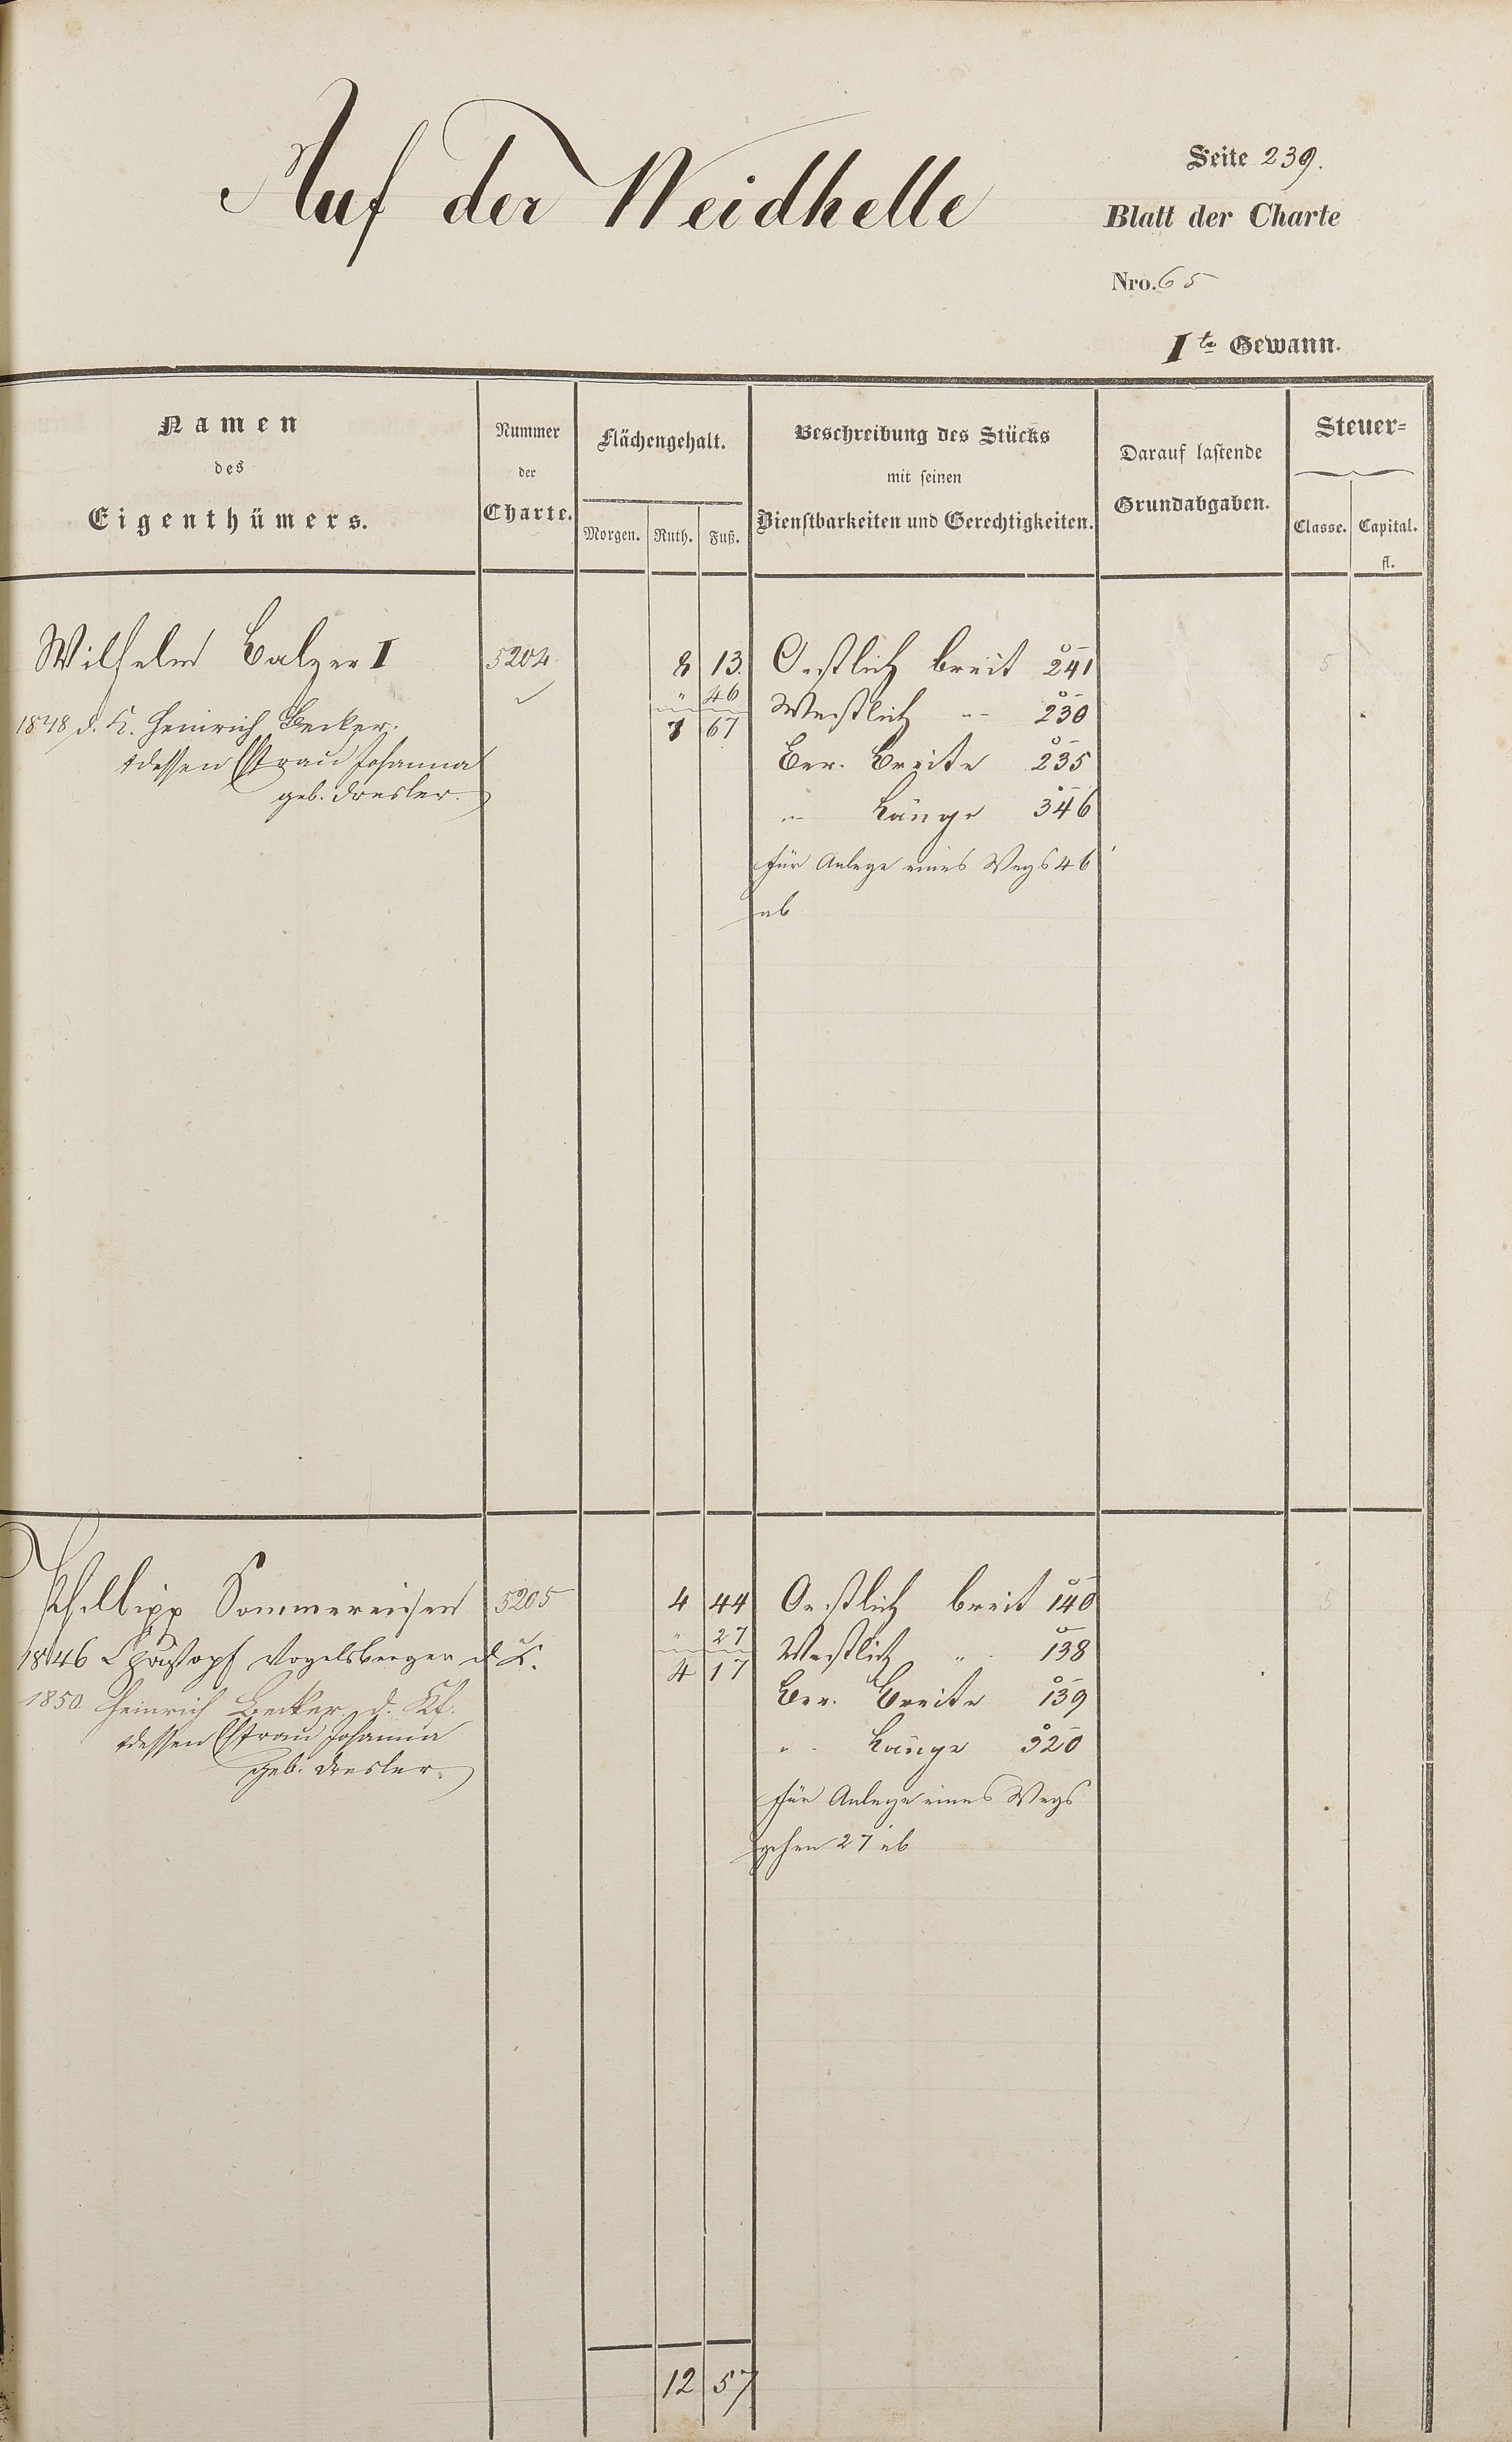 Auf der Weidhelle
Seite 239.
Blatt der Charte
Nro. 65
Ite Gewann.
Namen
des
Eigenthümers.
Nummer
der
Charte.
Flächengehalt.
Morgen. Ruth. Fuß.
Beschreibung des Stücks
mit seinen
Dienstbarkeiten und Gerechtigkeiten.
Darauf lastende
Grundabgaben.
Steuer-
Classe. Capital.
fl.
Wilhelm Balzer I 5204 8 13. Oestlich breit 241 5
" 46 Westlich -- 230
1848 d. K. Heinrich Becker. 7 67
Ber. Breite 235
dessen Ehfrau Johanna
geb. Dresler.
" Länge 346
für Anlage eines Wegs 46'
ab
Phillipp Sommereisen 5205 4 44 Oestlich breit 140 5
" 27 Westlich " 138
1846 Christoph Vogelsberger d. K. 4 17
Ber. Breite 139
1850. Heinrich Becker d. Kf.
dessen Ehfrau Johanna
" Länge 320
geb. Dresler.
für Anlage eines Wegs
gehen 27' ab
12 57